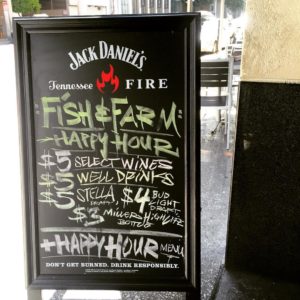 JACK DANIEL'S
Tennessee FIRE
FISH & FARM:
HAPPY HOUR
$5 SELECT WINES
$5 WELL DRINKS
$5 STELLA DRAFT, $4 BUD LIGHT DRAFT,
$3 MILLER HIGH LIFE BOTTLE
+ HAPPY HOUR MENU
DON'T GET BURNED. DRINK RESPONSIBLY.